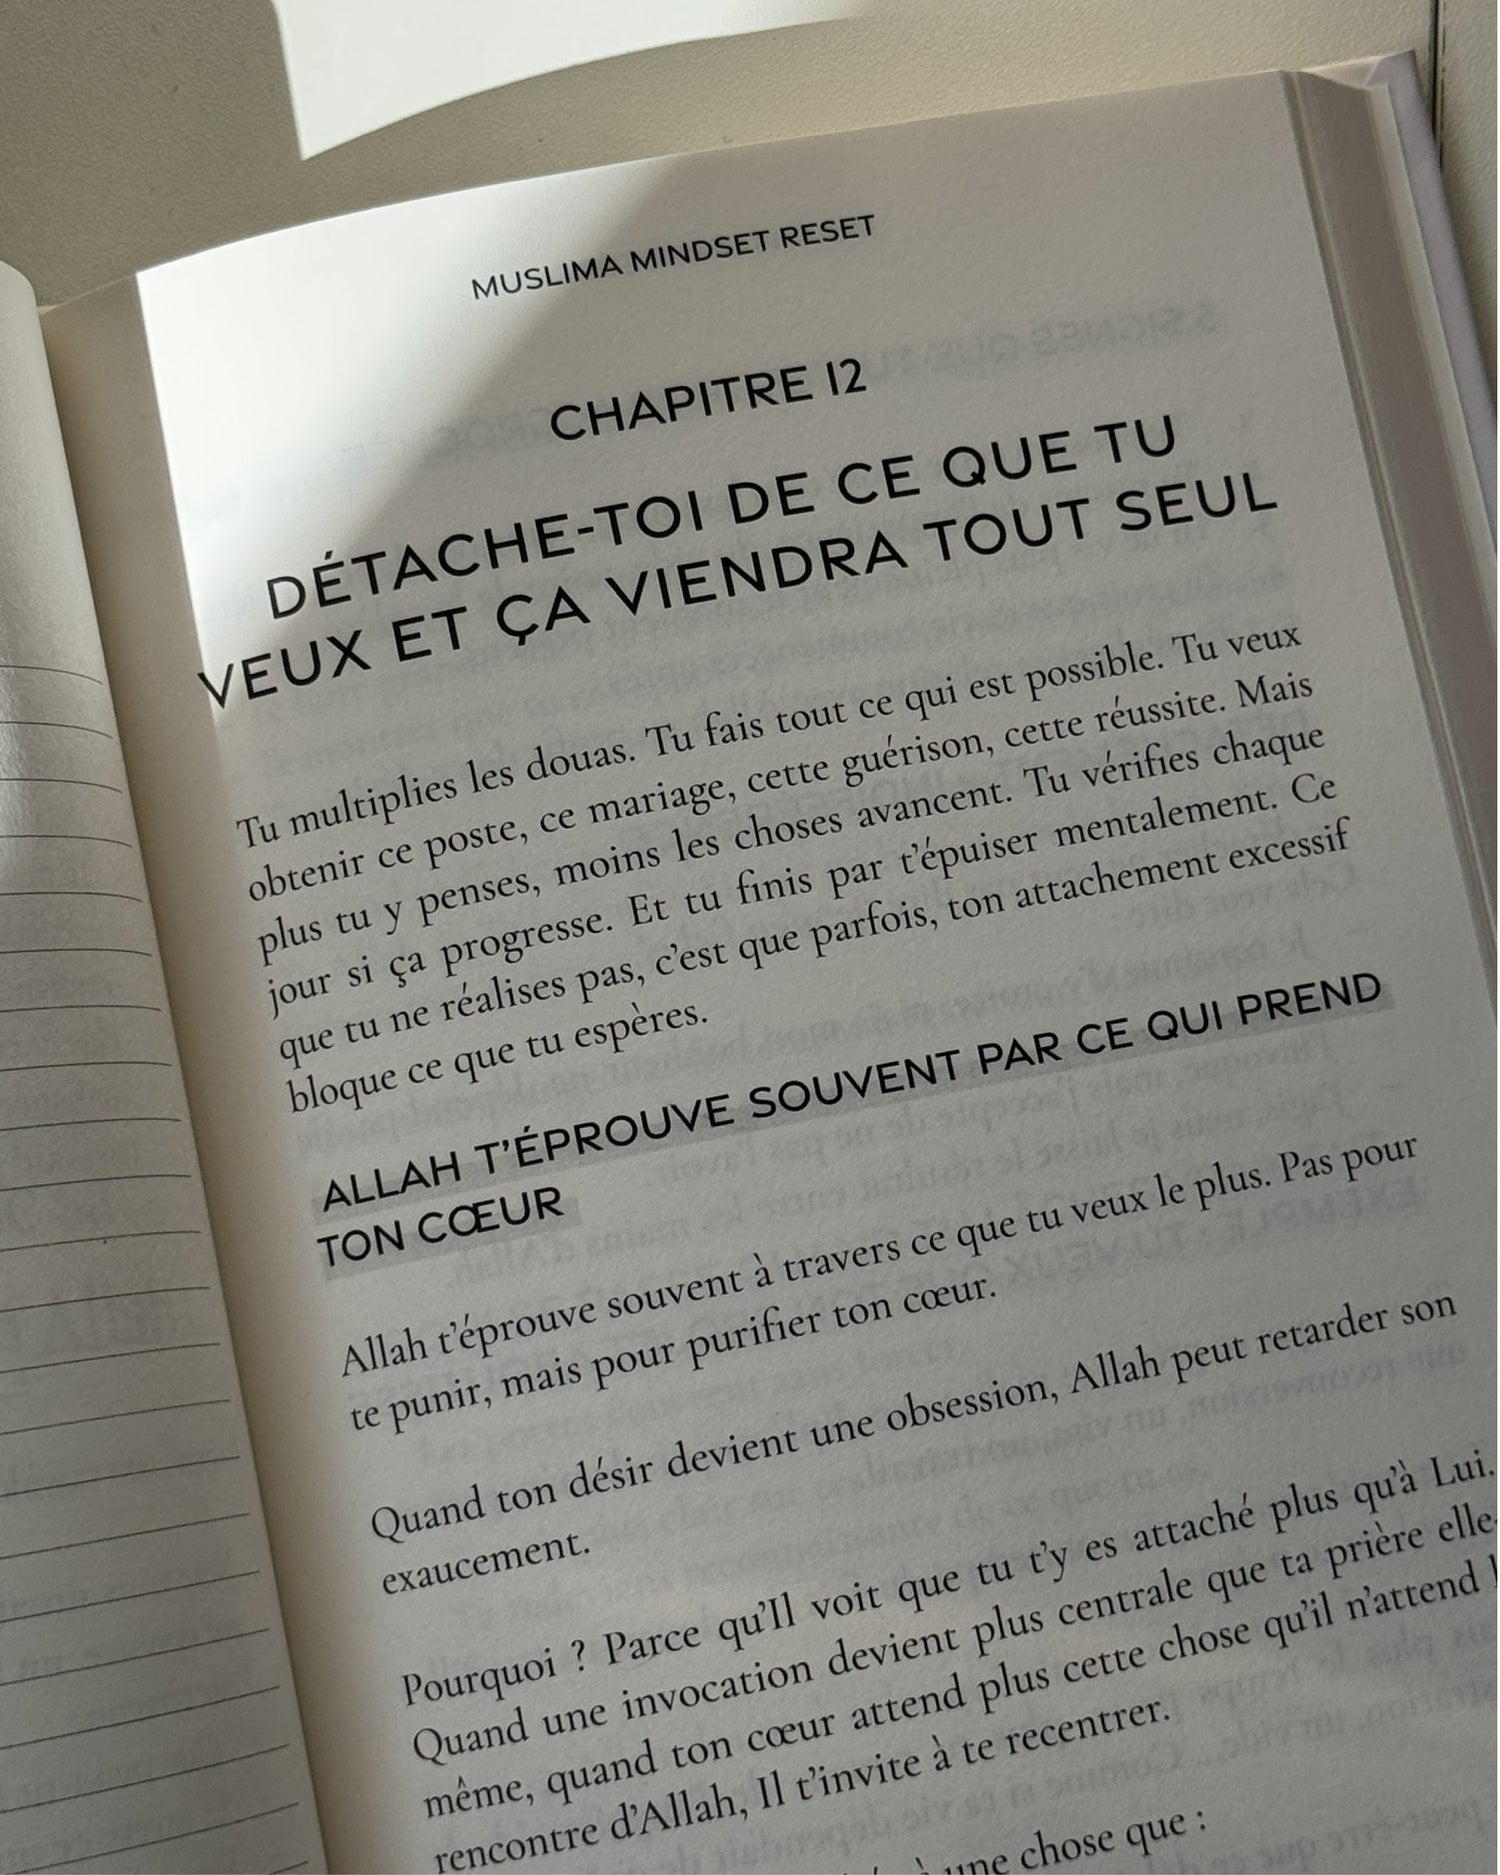 MUSLIMA MINDSET RESET
CHAPITRE 12
DÉTACHE-TOI DE CE QUE TU
VEUX ET ÇA VIENDRA TOUT SEUL
Tu multiplies les douas. Tu fais tout ce qui est possible. Tu veux
obtenir ce poste, ce mariage, cette guérison, cette réussite. Mais
plus tu y penses, moins les choses avancent. Tu vérifies chaque
jour si ça progresse. Et tu finis par t'épuiser mentalement. Ce
que tu ne réalises pas, c'est que parfois, ton attachement excessif
bloque ce que tu espères.
ALLAH T'ÉPROUVE SOUVENT PAR CE QUI PREND
TON CŒUR
Allah t'éprouve souvent à travers ce que tu veux le plus. Pas pour
te punir, mais pour purifier ton cœur.
Quand ton désir devient une obsession, Allah peut retarder son
exaucement.
Pourquoi ? Parce qu'Il voit que tu t'y es attaché plus qu'à Lui.
Quand une invocation devient plus centrale que ta prière elle-
même, quand ton cœur attend plus cette chose qu'il n'attend
rencontre d'Allah, Il t'invite à te recentrer.
à une chose que :